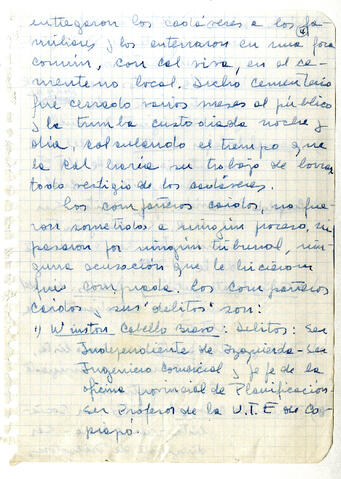 entregaron los cadáveres a los fa- (4)
miliares y los enterraron en una fosa
común, con cal viva, en el ce-
menterio local. Dicho cementerio
fue cerrado varios meses al público
y la tumba custodiada noche y
día, calculando el tiempo que
la cal haría su trabajo de borrar
todo vestigio de los cadáveres.
Los compañeros caídos, no fue
ron sometidos a ningún proceso, ni
pasaron por ningún tribunal, nin-
guna acusación que le hicieron
fue comprobada. Los compañeros
caídos y sus "delitos" son:
1) Winston Cabello Bravo: Delitos: Ser
Independiente de Izquierda - Ser
Ingeniero Comercial y jefe de la
oficina provincial de Planificación
Ser Profesor de la U.T.E de Co
piapó.